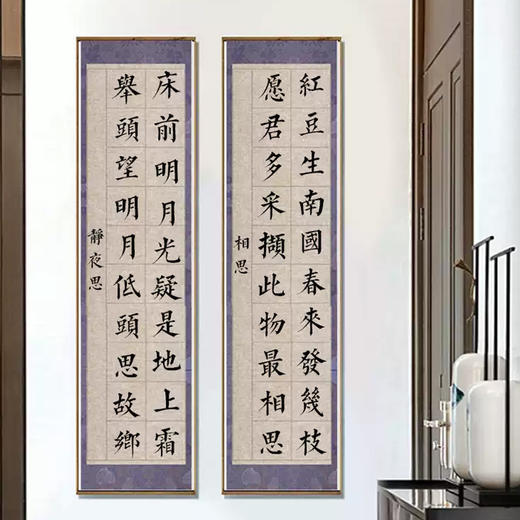 紅豆生南國春來發幾枝
愿君多采擷此物最相思
相思
床前明月光疑是地上霜
舉頭望明月低頭思故鄉
靜夜思